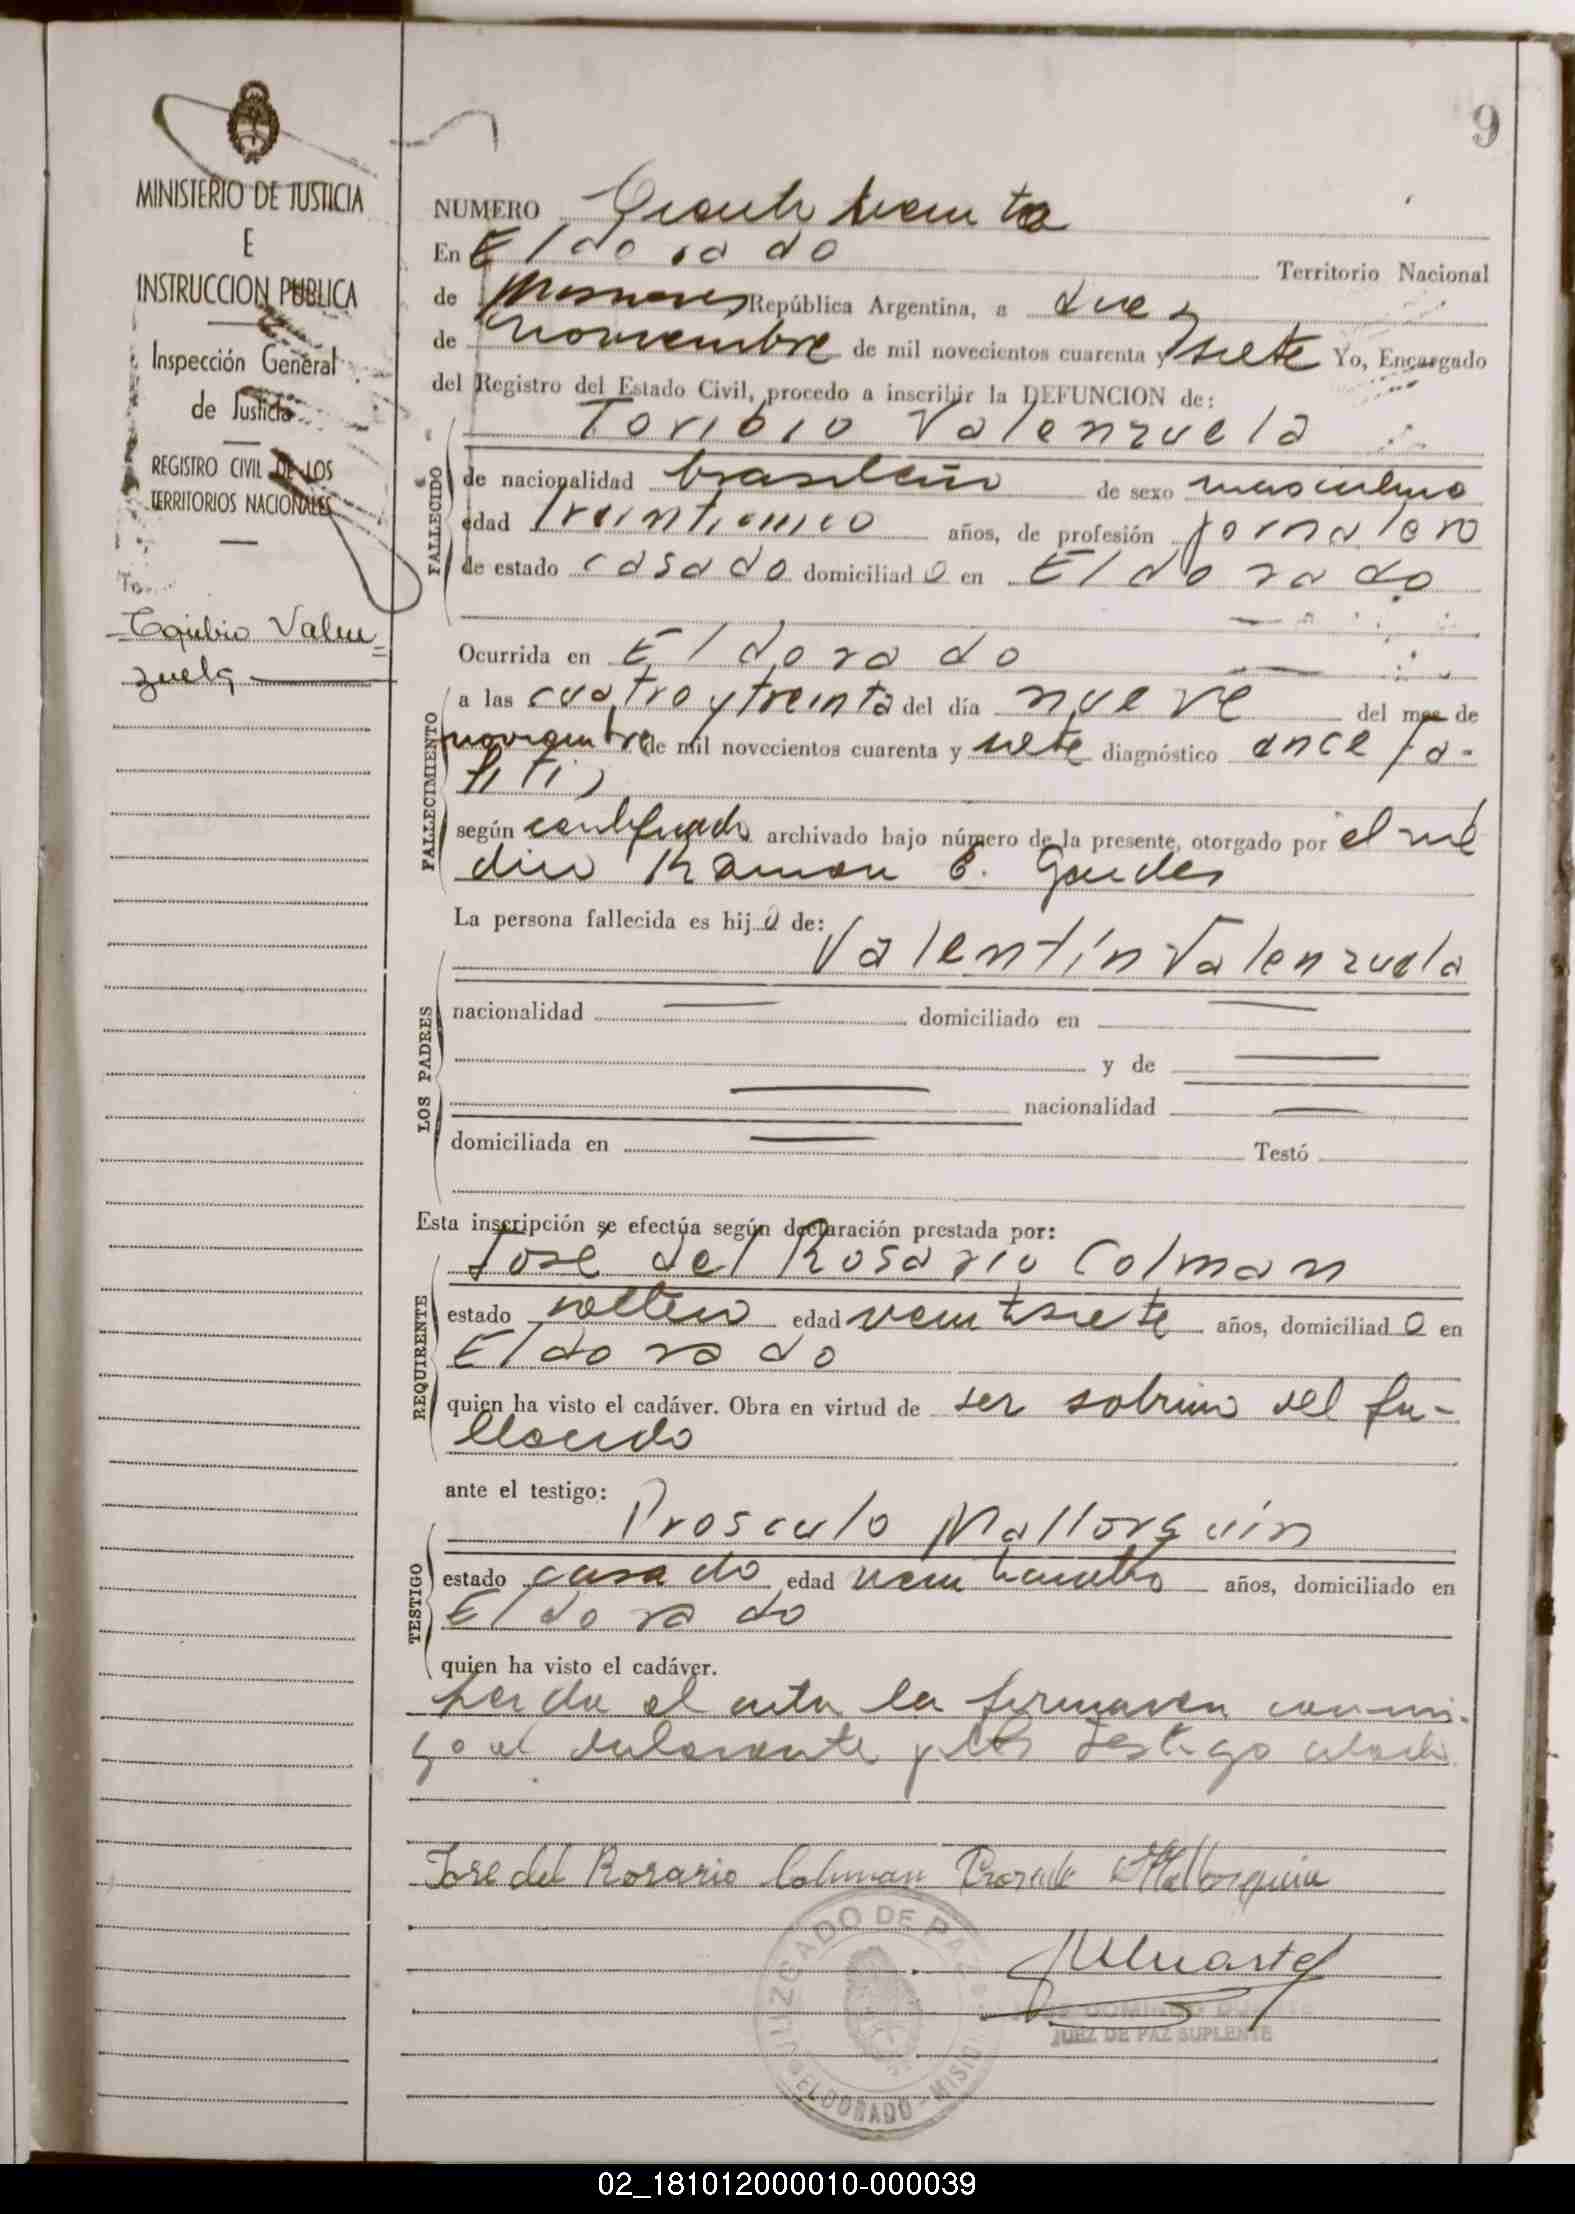 9
MINISTERIO DE JUSTICIA
E
INSTRUCCION PUBLICA
Inspección General
de Justicia
REGISTRO CIVIL DE LOS
TERRITORIOS NACIONALES
To
Toribio Valen=
zuela
NUMERO
En Eldorado Territorio Nacional
de Misiones República Argentina, a diez
de noviembre de mil novecientos cuarenta y siete Yo, Encargado
del Registro del Estado Civil, procedo a inscribir la DEFUNCION de:
Toribio Valenzuela
FALLECIDO
de nacionalidad brasileño de sexo masculino
edad treinticinco años, de profesión jornalero
de estado casado domiciliad o en Eldorado
Ocurrida en Eldorado
FALLECIMIENTO
a las cuatro y treinta del día nueve del mes de
noviembre de mil novecientos cuarenta y siete diagnóstico encefa-
litis
según certificado archivado bajo número de la presente, otorgado por el mé
dico Ramon
La persona fallecida es hij o de:
Valentín Valenzuela
LOS PADRES
nacionalidad domiciliado en
y de
nacionalidad
domiciliada en Testó
Esta inscripción se efectúa según declaración prestada por:
José del Rosario Colman
REQUIRENTE
estado soltero edad veintisiete años, domiciliad o en
Eldorado
quien ha visto el cadáver. Obra en virtud de ser sobrino del fa-
llecido
ante el testigo:
Prosculo Mallorquín
TESTIGO
estado casado edad años, domiciliado en
Eldorado
quien ha visto el cadáver.
Leida el acta la firmaron conmi-
go el declarante y el testigo citado
Jose del Rosario Colman Mallorquin
JUZGADO DE PAZ
ELDORADO - MISIONES
DOMINGO DUARTE
JUEZ DE PAZ SUPLENTE
02_181012000010-000039